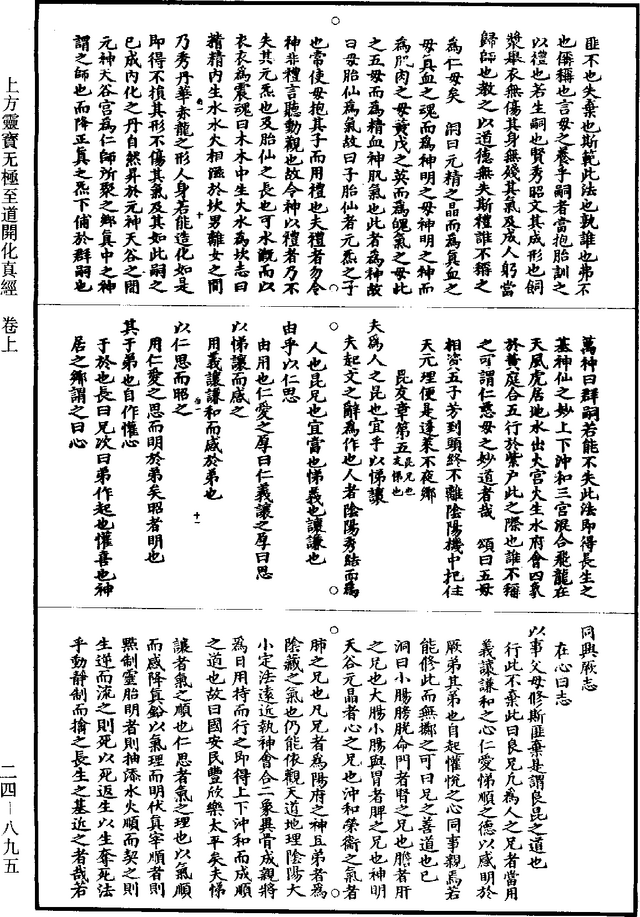 匪不也失棄也斯範此法也孰誰也弗不
也儔稱也言母之養乎嗣者當抱胎訓之
以禮也若生嗣也賢秀昭文其成形也飼
漿舉衣無傷其身無殘其氣及成人躬當
歸師也教之以道德無失斯禮誰不稱之
為仁母矣　洞曰元精之晶而為真血之
母真血之魂而為神明之母神明之神而
為肌肉之母黃戊之英而為魄氣之母此
之五母而為精血神肌氣也此者為神故
曰母胎仙為氣故曰子胎仙者元炁之子
也常使母抱其子而用禮也夫禮者勿令
神非禮言聽動觀也故令神以禮者乃不
失其元炁也及胎仙之長也可水觀而以
衣衣為震魂曰木木中生火水為坎志曰
精精內生水水火相濟於坎男離女之間
十
乃秀丹華赤龍之形人身若能造化如是
即得不損其形不傷其氣及其如此嗣之
已成內化之丹自然昇於元神天谷之間
元神天谷宮為仁師所聚之鄉真中之神
謂之師也而降正真之炁下備於群嗣也
萬神曰群嗣若能不失此法即得長生之
基神仙之妙上下沖和三宮混合飛龍在
天風虎居地水出火宮火生水府會四象
於黃庭合五行於紫戶此之際也誰不稱
之可謂仁慈母之妙道者哉　頌曰五母
相資五子芳到頭終不離陰陽機中把住
天元理便是蓬萊不夜鄉
昆友章第五昆兄也友悌也
夫為人之昆也宜乎以悌讓
夫起文之辭為作也人者陰陽秀結而為
人也昆兄也宜當也悌義也讓謙也
由乎以仁思
由用也仁愛之厚曰仁義讓之厚曰思
以悌讓而感之
用義讓謙和而感於弟也
十一
以仁思而昭之
用仁愛之思而明於弟矣昭者明也
其于弟也自作懽心
于於也長曰兄次曰弟作起也懽喜也神
居之鄉謂之曰心
同興厥志
在心曰志
以事父母修斯匪棄是謂良昆之道也
行此不棄此曰良兄凡為人之兄者當用
義讓謙和之心仁愛悌順之德以感明於
厥弟其弟也自起懽悅之心同事親焉若
能修此而無擲之可曰兄之善道也已
洞曰小腸膀胱命門者腎之兄也膽者肝
之兄也大腸小腸與胃者脾之兄也神明
天谷元晶者心之兄也沖和榮衛之氣者
肺之兄也凡兄者為陽府之神且弟者為
陰藏之氣也仍能依觀天道地理陰陽大
小定法遠近執神會合二象異骨成親將
為日用持而行之即得上下沖和而成順
之道也故曰國安民豐欣樂太平矣夫悌
讓者氣之順也仁思者氣之理也以氣順
而感降真鉛以氣理而明伏真宰順者則
點制靈胎明者則抽添水火順而契之則
生逆而流之則死以死返生以生奪死法
乎動靜制而擒之長生之基近之者哉若
上方靈寶无極至道開化真經　卷上
二四—八九五